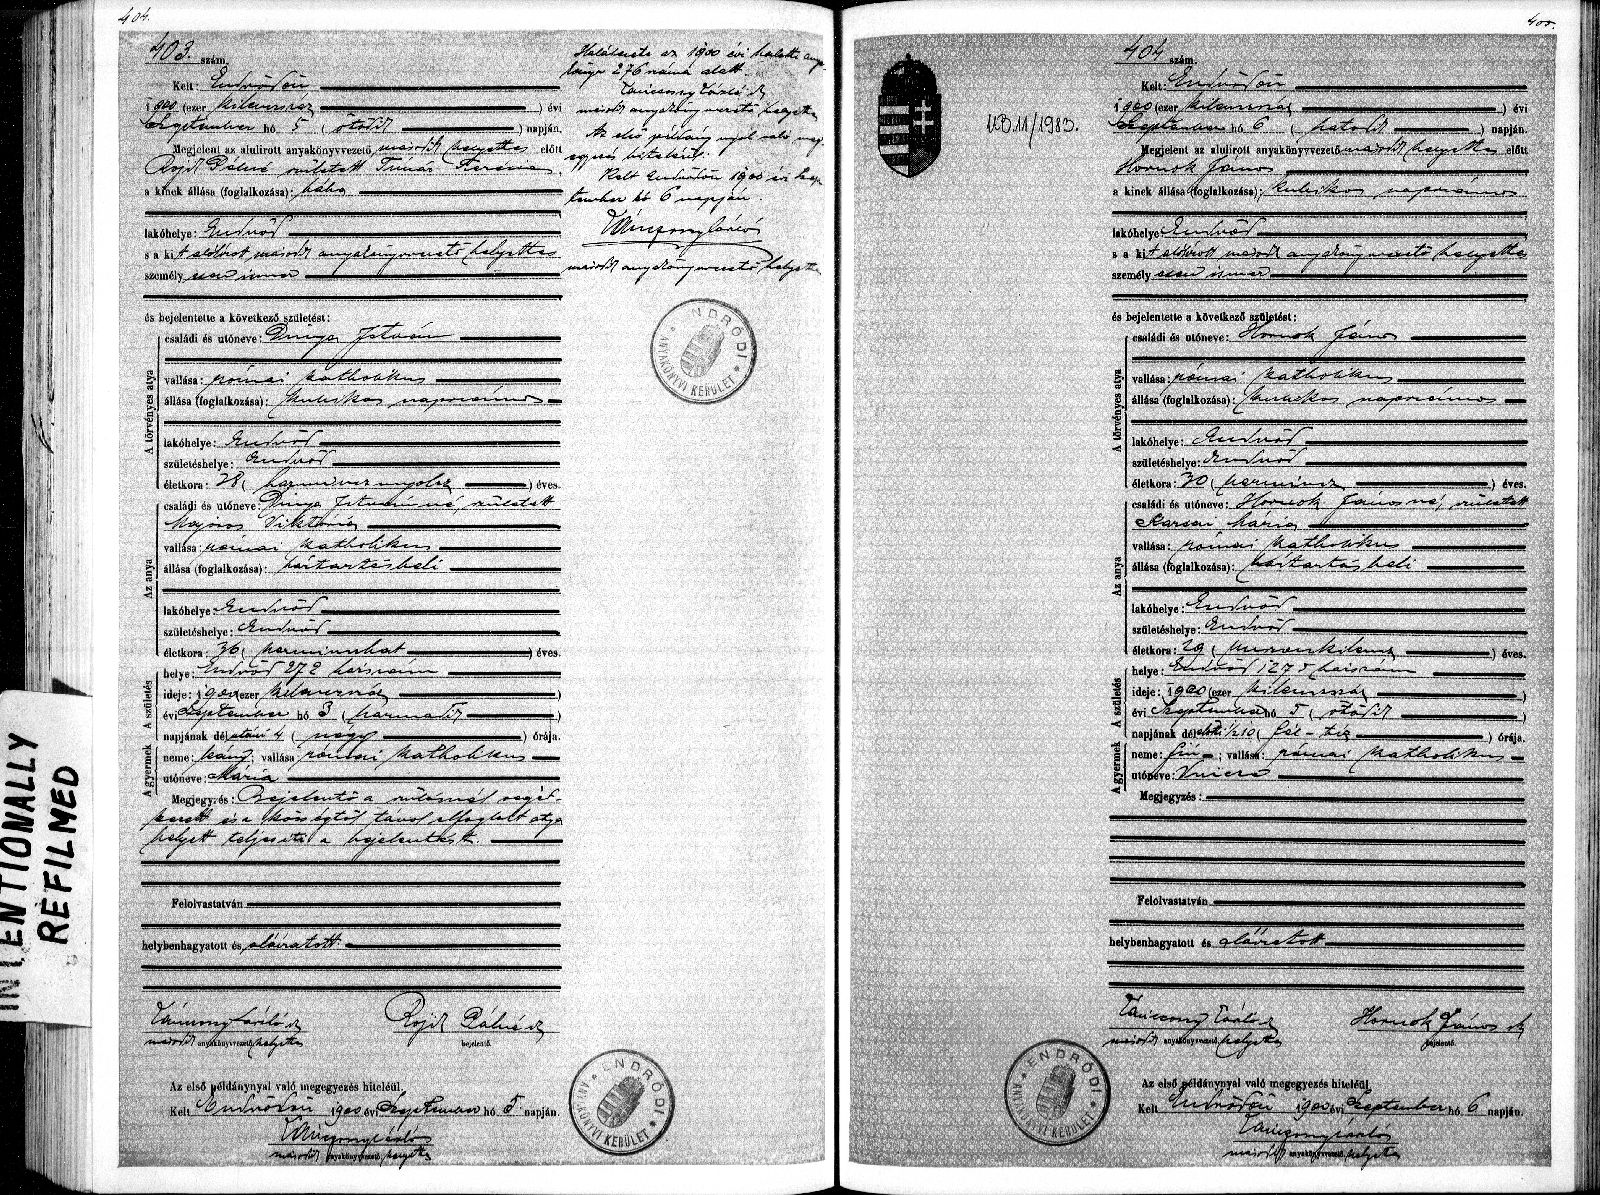 404.
403. szám.
Kelt: Endrődön
1900 (ezer kilencszáz) évi
Szeptember hó 5 (ötödik) napján.
Megjelent az alulirott anyakönyvvezető második helyettes előtt
Rojik Pálné született Terézia
a kinek állása (foglalkozása): bába
lakóhelye: Endrőd
s a kit alólirott, második anyakönyvvezető helyettes
személyesen ismer
és bejelentette a következő születést:
A törvényes atya
családi és utóneve: Dinya István
vallása: római katholikus
állása (foglalkozása): kubikos napszámos
lakóhelye: Endrőd
születéshelye: Endrőd
életkora: 38 (harmincznyolcz) éves.
Az anya
családi és utóneve: Dinya Istvánné, született
Majoros Viktória
vallása: római katholikus
állása (foglalkozása): háztartásbeli
lakóhelye: Endrőd
születéshelye: Endrőd
életkora: 36 (harminczhat) éves.
A születés
helye: Endrőd 272 házszám
ideje: 1900 (ezer kilencszáz)
évi Szeptember hó 3 (harmadik)
napjának délutáni 4 (négy) órája.
A gyermek
neme: leány; vallása római katholikus
utóneve: Mária
Megjegyzés: Bejelentő a szülésnél segéd-
kezett és a községtől távol elfoglalt atya
helyett teljesíti a bejelentést.
Felolvastatván
helybenhagyatott és aláiratott.
Tánczony László s k
második anyakönyvvezető helyettes
Rojik Pálné s k
bejelentő.
Az első példánynyal való megegyezés hiteléül.
Kelt Endrődön 1900 évi Szeptember hó 5 napján.
Tánczony László
második anyakönyvvezető helyettes
Halálesete az 1900 évi halotti anya-
könyv 276 száma alatt.
Tánczony László s k
második anyakönyvvezető helyettes
Az első példánynyal való meg-
egyezés hiteléül.
Kelt Endrődön 1900 évi Szep-
tember hó 6 napján.
Tánczony László
második anyakönyvvezető helyettes
ENDRŐDI ANYAKÖNYVI KERÜLET
ENDRŐDI ANYAKÖNYVI KERÜLET
INTENTIONALLY
REFILMED
404 szám.
Kelt: Endrődön
1900 (ezer kilencszáz) évi
Szeptember hó 6 (hatodik) napján.
Megjelent az alulirott anyakönyvvezető második helyettes előtt
Hornok János
a kinek állása (foglalkozása): kubikos napszámos
lakóhelye: Endrőd
s a kit alólirott második anyakönyvvezető helyettes
személyesen ismer
és bejelentette a következő születést:
A törvényes atya
családi és utóneve: Hornok János
vallása: római katholikus
állása (foglalkozása): kubikos napszámos
lakóhelye: Endrőd
születéshelye: Endrőd
életkora: 30 (harmincz) éves.
Az anya
családi és utóneve: Hornok Jánosné, született
Karsai Mária
vallása: római katholikus
állása (foglalkozása): háztartásbeli
lakóhelye: Endrőd
születéshelye: Endrőd
életkora: 29 (huszonkilencz) éves.
A születés
helye: Endrőd 1275 házszám
ideje: 1900 (ezer kilencszáz)
évi Szeptember hó 5 (ötödik)
napjának délelőtti 1/2 10 (fél-tíz) órája.
A gyermek
neme: fiú; vallása: római katholikus
utóneve: Vincze
Megjegyzés:
Felolvastatván
helybenhagyatott és aláiratott
Tánczony László s k
második anyakönyvvezető helyettes
Hornok János s k
bejelentő.
Az első példánynyal való megegyezés hiteléül.
Kelt Endrődön 1900 évi Szeptember hó 6 napján.
Tánczony László
második anyakönyvvezető helyettes
11/1983.
ENDRŐDI ANYAKÖNYVI KERÜLET